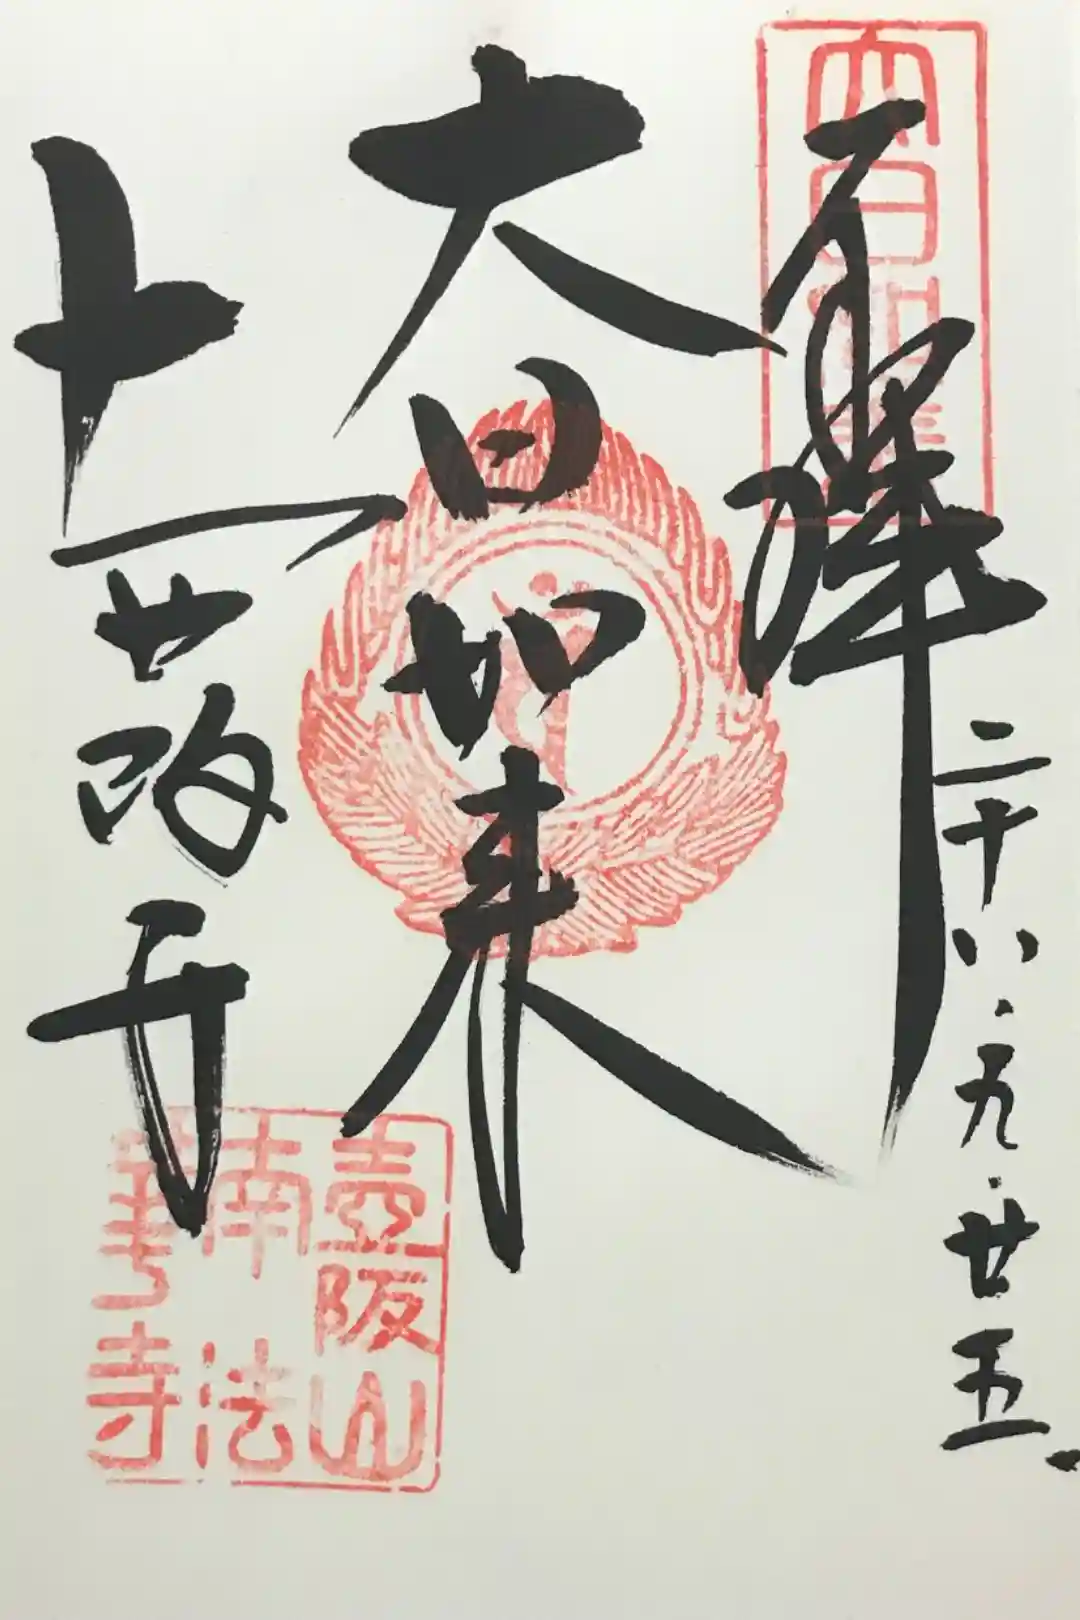 奉拝
二十八.九.廿五.
大日如来
壺阪寺
壺阪山
南法
華寺